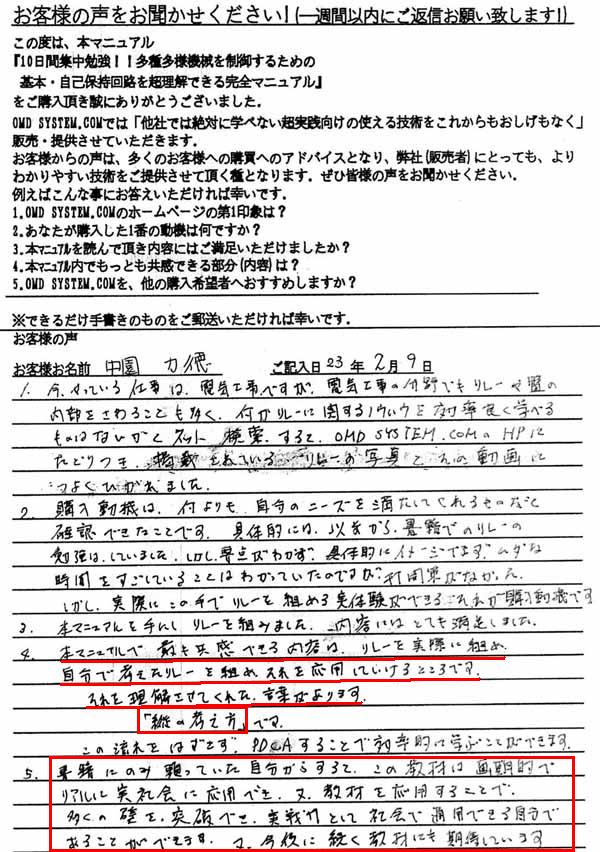 お客様の声をお聞かせください！(一週間以内にご返信お願い致します！)
この度は、本マニュアル
『10日間集中勉強！！多種多様機械を制御するための
基本・自己保持回路を超理解できる完全マニュアル』
をご購入頂き誠にありがとうございました。
OMD SYSTEM.COMでは「他社では絶対に学べない超実践向けの使える技術をこれからもおしげもなく」
販売・提供させていただきます。
お客様からの声は、多くのお客様への購買へのアドバイスとなり、弊社(販売者)にとっても、より
わかりやすい技術をご提供させて頂く種となります。ぜひ皆様の声をお聞かせください。
例えばこんな事にお答えいただければ幸いです。
1.OMD SYSTEM.COMのホームページの第1印象は？
2.あなたが購入した1番の動機は何ですか？
3.本マニュアルを読んで頂き内容にはご満足いただけましたか？
4.本マニュアル内でもっとも共感できる部分(内容)は？
5.OMD SYSTEM.COMを、他の購入希望者へおすすめしますか？
※できるだけ手書きのものをご郵送いただければ幸いです。
お客様の声
お客様お名前 中園 力徳 ご記入日 23年 2月 9日
1. 今、やっている仕事は、電気工事ですが、電気工事の分野でもリレーや盤の
内部をさわることも多く、何かリレーに関するノウハウを効率良く学べる
ものはないかとネット検索すると、OMD SYSTEM.COMのHPに
たどりつき、掲載されているリレーの写真とその動画に
つよくひかれました。
2. 購入動機は、何よりも、自分のニーズを満たしてくれるものだと
確認できたことです。具体的には、以前から、書籍でのリレーの
勉強は、していました。しかし、要点がわからず、具体的にイメージできず、ムダな
時間をすごしていることはわかっていたのですが、打開策がなかった。
しかし、実際にこの手でリレーを組める実体験ができるこれが購入動機です
3. 本マニュアルを手にしリレーを組みました。内容にはとても満足しました。
4. 本マニュアルで最も共感できる内容は、リレーを実際に組め
自分で考えたリレーを組めそれを応用していけるところです。
それを理解させてくれた言葉があります。
「縦の考え方」です。
この流れをはずさず、PDCAすることで効率的に学ぶことができます。
5. 書籍にのみ頼っていた自分からすると、この教材は画期的で
リアルに実社会に応用でき、又、教材を応用することで、
多くの壁を、突破でき、実戦力として社会で通用できる自分で
あることができます。又、今後に続く教材にも期待しています